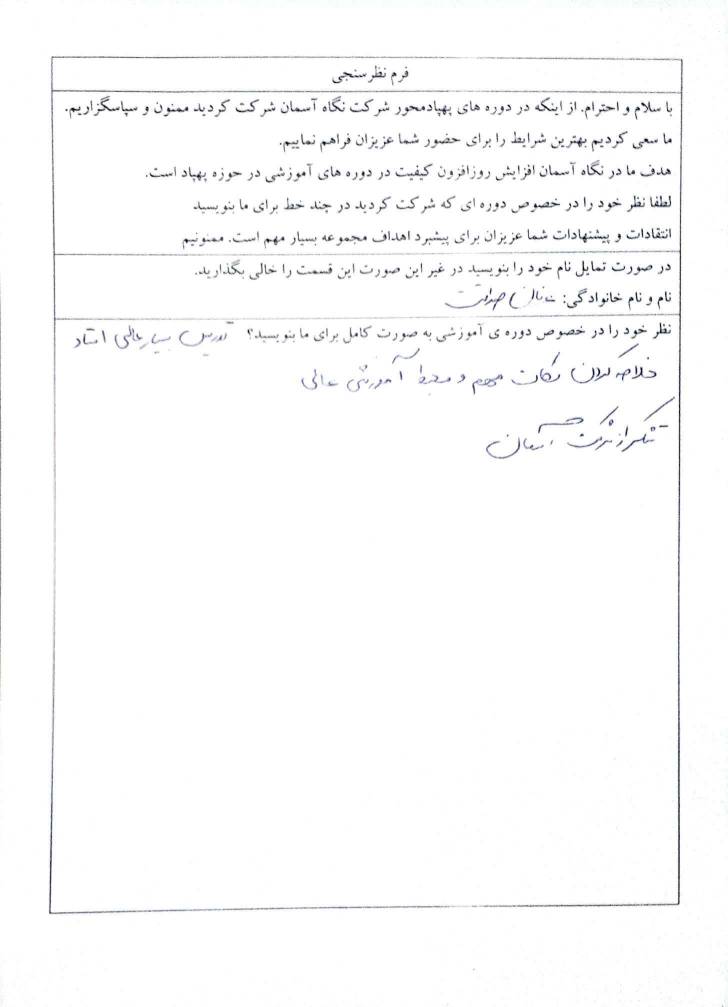 فرم نظرسنجی
با سلام و احترام. از اینکه در دوره های پهپادمحور شرکت نگاه آسمان شرکت کردید ممنون و سپاسگزاریم.
ما سعی کردیم بهترین شرایط را برای حضور شما عزیزان فراهم نماییم.
هدف ما در نگاه آسمان افزایش روزافزون کیفیت در دوره های آموزشی در حوزه پهپاد است.
لطفا نظر خود را در خصوص دوره ای که شرکت کردید در چند خط برای ما بنویسید
انتقادات و پیشنهادات شما عزیزان برای پیشبرد اهداف مجموعه بسیار مهم است. ممنونیم
در صورت تمایل نام خود را بنویسید در غیر این صورت این قسمت را خالی بگذارید.
نام و نام خانوادگی: صداقت
نظر خود را در خصوص دوره ی آموزشی به صورت کامل برای ما بنویسید؟ تدریس بسیار عالی استاد
خلاصه کردن نکات مهم و محیط آموزشی عالی
تشکر از شرکت آسمان